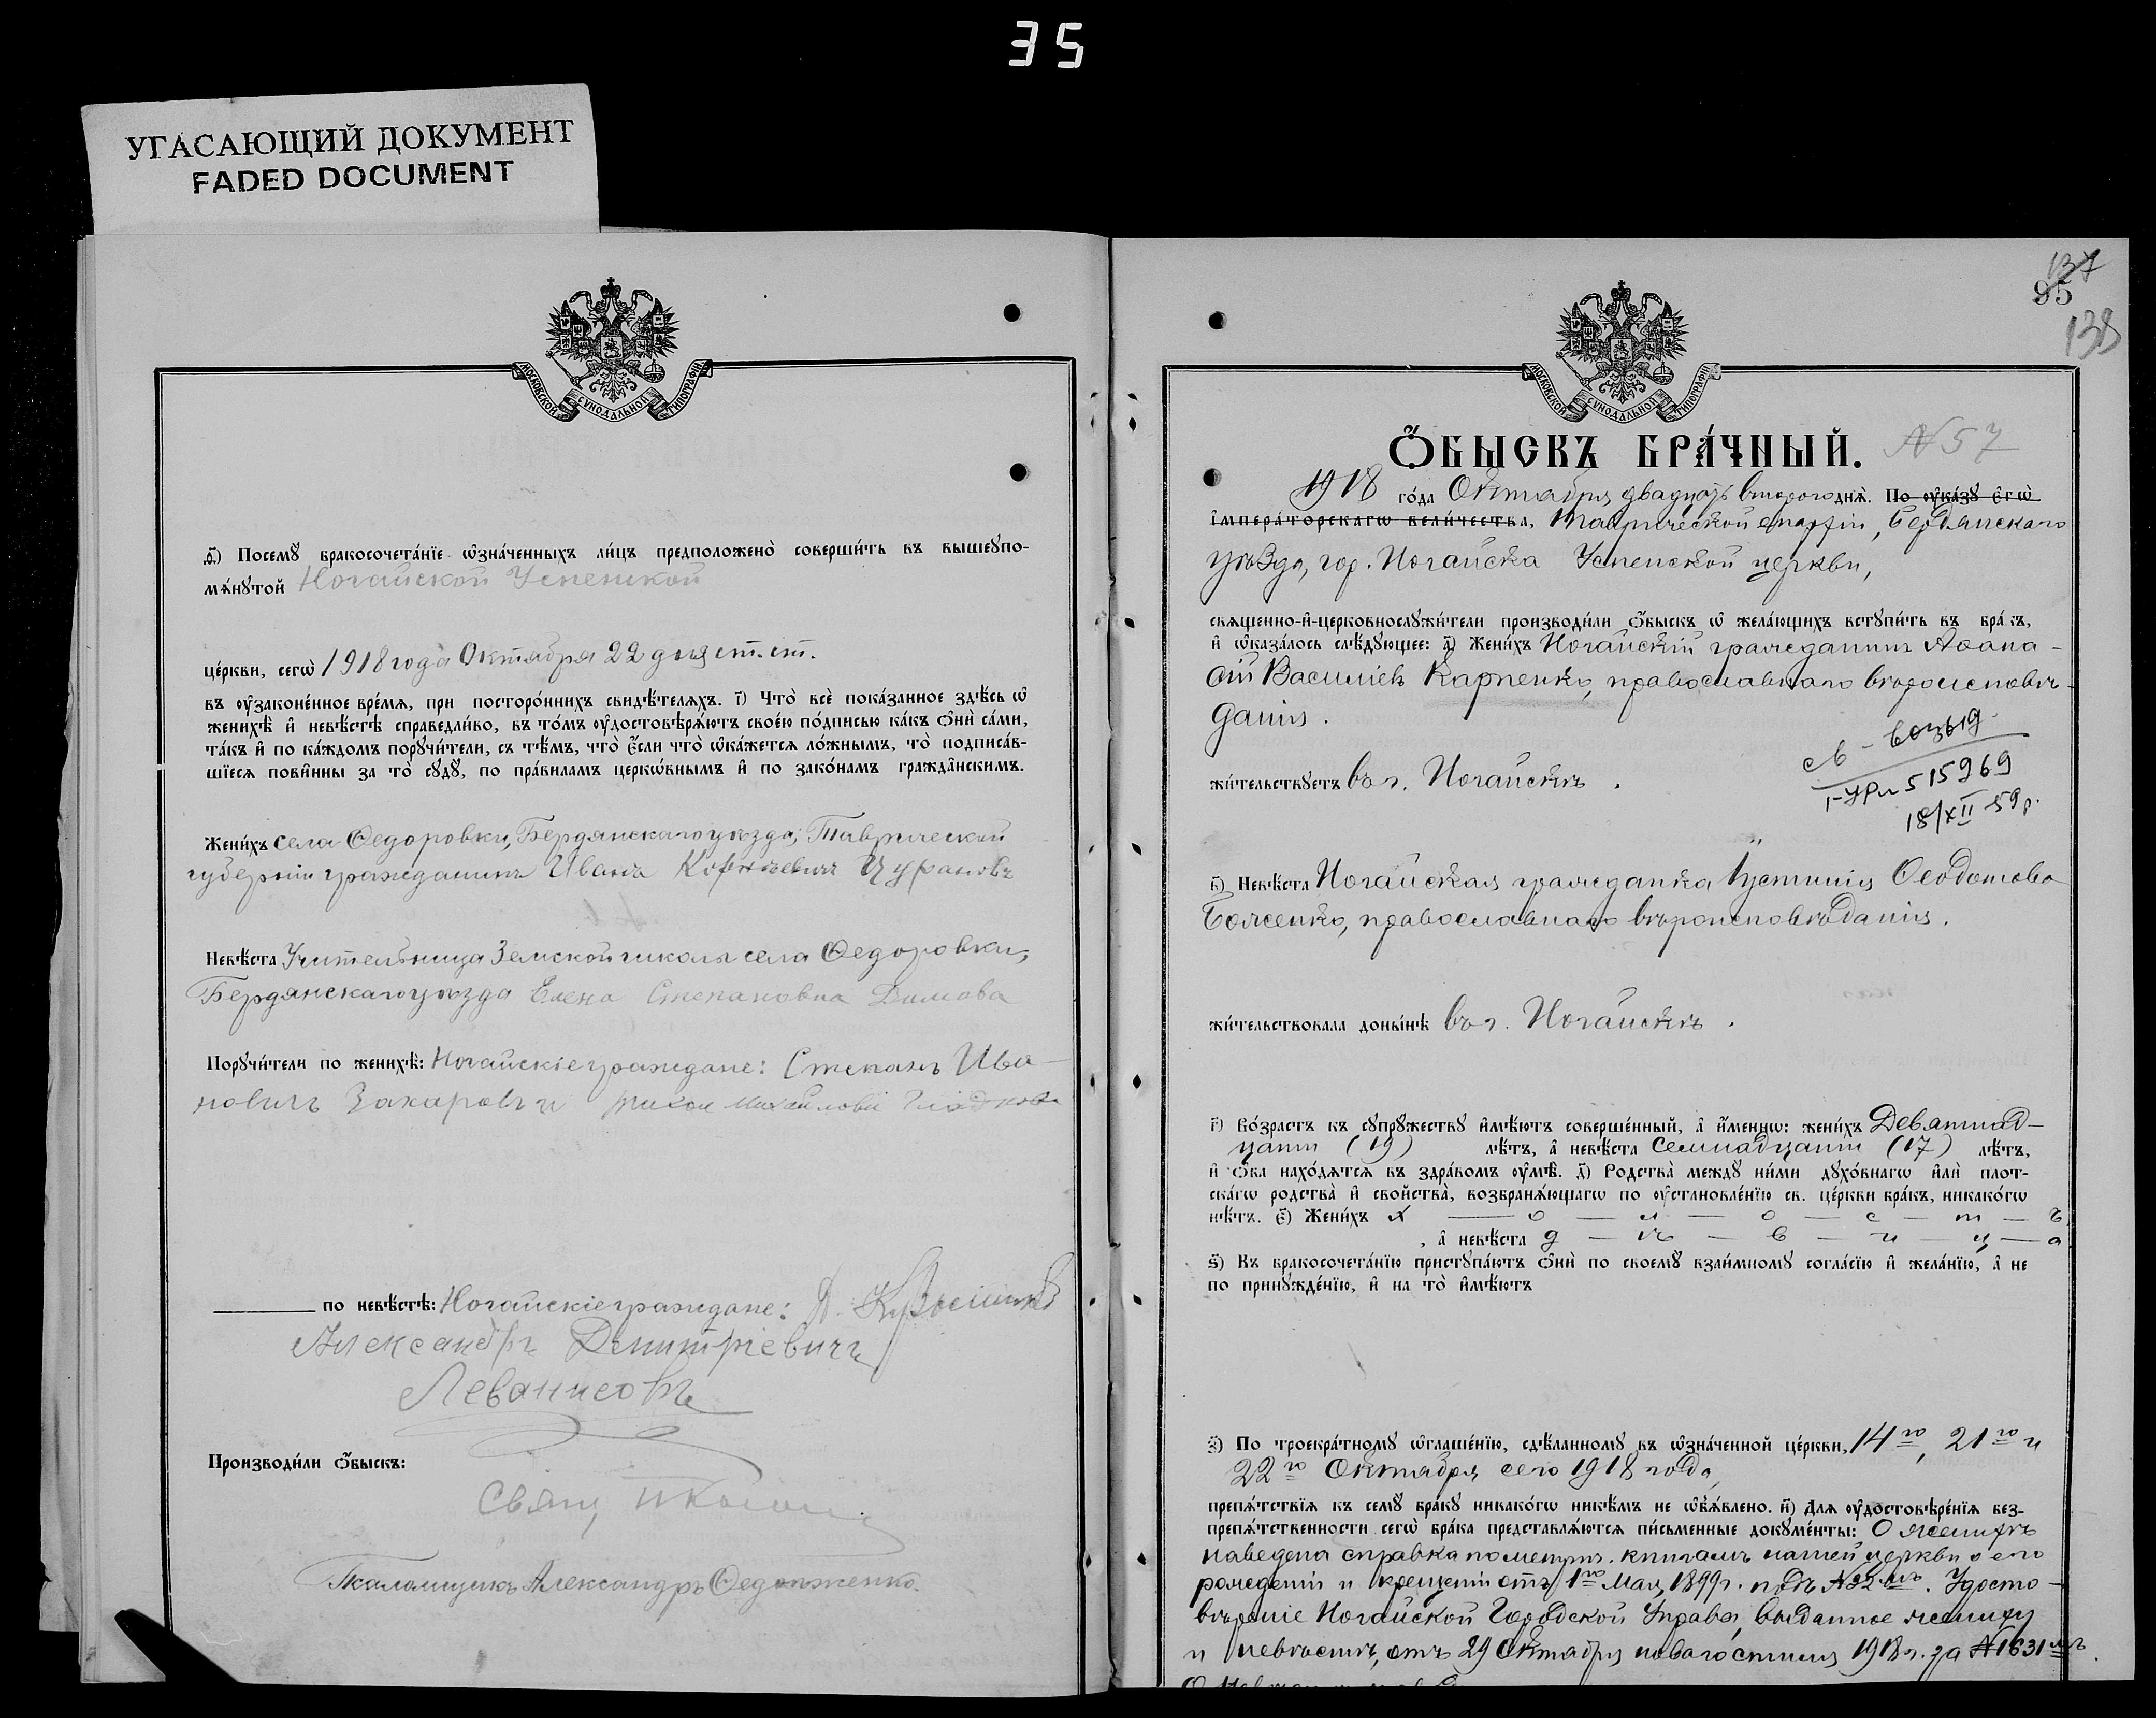 35
УГАСАЮЩИЙ ДОКУМЕНТ
FADED DOCUMENT
МОСКОВСКОЙ СУНОДАЛЬНОЙ ТИПОГРАФІИ
д҃) Посемꙋ бракосочета́нїе ѡ҆зна́ченныхъ ли́цъ предположено̀ соверши́ть въ вышеꙋпо-
мѧ́нꙋтой Ногайской Успенской
це́ркви, сегѡ̀ 1918 года Октября 22 дня ст. ст.
въ ᲂу҆зако́ненное вре́мѧ, при посторо́ннихъ свидѣ́телѧхъ. і҃) Что̀ всѐ пока́занное здѣ́сь ѡ҆
женихѣ̀ и҆ невѣ́стѣ справедли́во, въ то́мъ ᲂу҆достовѣрѧ́ютъ свое́ю по́дписью ка́къ ѻ҆нѝ са́ми,
та́къ и҆ по ка́ждомъ порꙋчи́тели, съ тѣ́мъ, что̀ є҆́сли что̀ ѡ҆ка́жетсѧ ло́жнымъ, то̀ подписа́в-
шїесѧ пови́нны за то̀ сꙋдꙋ̀, по пра́виламъ церкѡ́внымъ и҆ по зако́намъ гражда́нскимъ.
Жени́хъ села Ѳедоровки, Бердянскаго уѣзда, Таврической
губерніи гражданинъ Иванъ Корнѣевичъ Цурановъ
Невѣ́ста Учительница Земской школы села Ѳедоровки,
Бердянскаго уѣзда Елена Степановна Димова
Порꙋчи́тели по женихѣ̀: Ногайскіе граждане: Степанъ Ива-
новичъ Захаровъ и Тихон Михайловъ
по невѣ́стѣ: Ногайскіе граждане:
Александръ Демитріевичъ
Производи́ли ѻ҆́быскъ:
Свящ.
Псаломщикъ Александръ
137
95
138
МОСКОВСКОЙ СУНОДАЛЬНОЙ ТИПОГРАФІИ
Ѻ҆́БЫСКЪ БРА́ЧНЫЙ. N 57
1918 го́да Октября двадцать второго днѧ̀. По ᲂу҆ка́зꙋ є҆гѡ̀
і҆мпера́торскагѡ вели́чества, Таврической епархіи, Бердянскаго
уѣзда, гор. Ногайска Успенской церкви,
свѧщенно-и҆-церковнослꙋжи́тели производи́ли ѻ҆́быскъ ѡ҆ жела́ющихъ встꙋпи́ть въ бра́къ,
и҆ ѡ҆каза́лось слѣ́дꙋющее: а҃) Жени́хъ Ногайскій гражданинъ Аѳана-
сій Василіевъ Карпенко, православнаго вѣроисповѣ-
данія.
св - возыд
I-УРл 515969
18/XII 59 р.
жи́тельствꙋетъ въ г. Ногайскѣ.
в҃) Невѣ́ста Ногайская гражданка Іустинія Ѳеодотова
Боженко, православнаго вѣроисповѣданія.
жи́тельствовала доны́нѣ въ г. Ногайскѣ.
г҃) Во́зрастъ къ сꙋпрꙋ́жествꙋ и҆мѣ́ютъ соверше́нный, а҆ и҆́меннѡ: жени́хъ Девятнад-
цати (19) лѣ́тъ, а҆ невѣ́ста Семнадцати (17) лѣ́тъ,
и҆ ѻ҆́ба нахо́дѧтсѧ въ здра́вомъ ᲂу҆мѣ̀. д҃) Родства̀ междꙋ̀ ни́ми дꙋхо́внагѡ и҆лѝ плот-
ска́гѡ родства̀ и҆ свойства̀, возбранѧ́ющагѡ по ᲂу҆становле́нїю св. це́ркви бра́къ, никако́гѡ
нѣ́тъ. є҃) Жени́хъ х — о — л — о — с — т — ъ
, а҆ невѣ́ста д — ѣ — в — и — ц — а
ѕ҃) Къ бракосочета́нїю пристꙋпа́ютъ ѻ҆нѝ по своемꙋ̀ взаи́мномꙋ согла́сїю и҆ жела́нїю, а҆ не
по принꙋжде́нїю, и҆ на то̀ и҆мѣ́ютъ
з҃) По троекра́тномꙋ ѡ҆глаше́нїю, сдѣ́ланномꙋ въ ѡ҆зна́ченной це́ркви, 14го, 21го и
22го Октября сего 1918 года,
препѧ́тствїѧ къ семꙋ̀ бра́кꙋ никако́гѡ никѣ́мъ не ѡ҆б̾ѧ́влено. и҃) Длѧ ᲂу҆достовѣре́нїѧ без-
препѧ́тственности сегѡ̀ бра́ка представлѧ́ютсѧ пи́сьменные докꙋме́нты: О женихѣ
наведена справка по метрич. книгамъ нашей церкви о его
рожденіи и крещеніи отъ 1го Мая 1899 г. подъ №32мъ. Удосто-
вѣреніе Ногайской Городской Управы, выданное жениху
и невѣстѣ, отъ 29 Октября новаго стиля 1918 г. за №1631мъ.